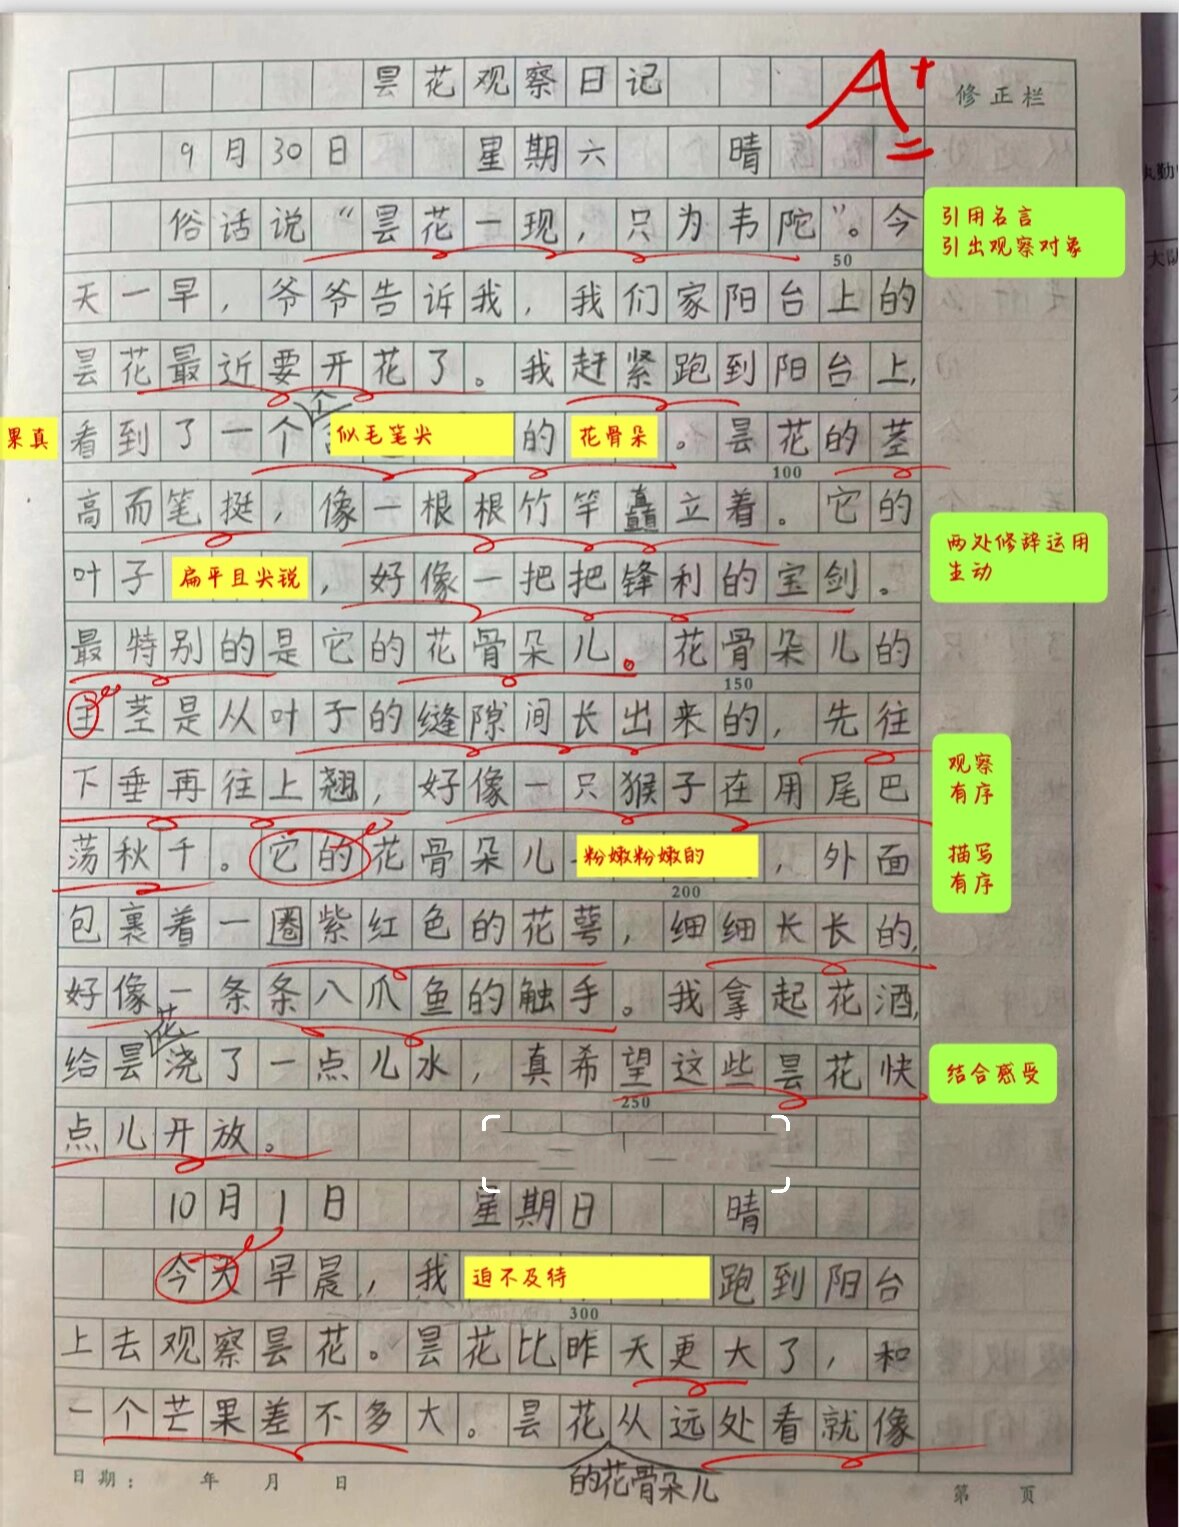 昙花观察日记
A+
修正栏
9月30日 星期六 晴
俗话说“昙花一现，只为韦陀”。今
引用名言
引出观察对象
50
天一早，爷爷告诉我，我们家阳台上的
昙花最近要开花了。我赶紧跑到阳台上，
个
果真 看到了一个 似毛笔尖 的 花骨朵 。昙花的茎
100
高而笔挺，像一根根竹竿矗立着。它的
叶子 扁平且尖锐 ，好像一把把锋利的宝剑。
两处修辞运用
生动
最特别的是它的花骨朵儿。花骨朵儿的
150
主茎是从叶子的缝隙间长出来的，先往
下垂再往上翘，好像一只猴子在用尾巴
观察
有序
荡秋千。它的花骨朵儿 粉嫩粉嫩的 ，外面
描写
有序
200
包裹着一圈紫红色的花萼，细细长长的，
好像一条条八爪鱼的触手。我拿起花酒，
花
给昙浇了一点儿水，真希望这些昙花快
结合感受
250
点儿开放。
10月1日 星期日 晴
今天早晨，我 迫不及待 跑到阳台
300
上去观察昙花。昙花比昨天更大了，和
一个芒果差不多大。昙花从远处看就像
的花骨朵儿
日期： 年 月 日
第 页